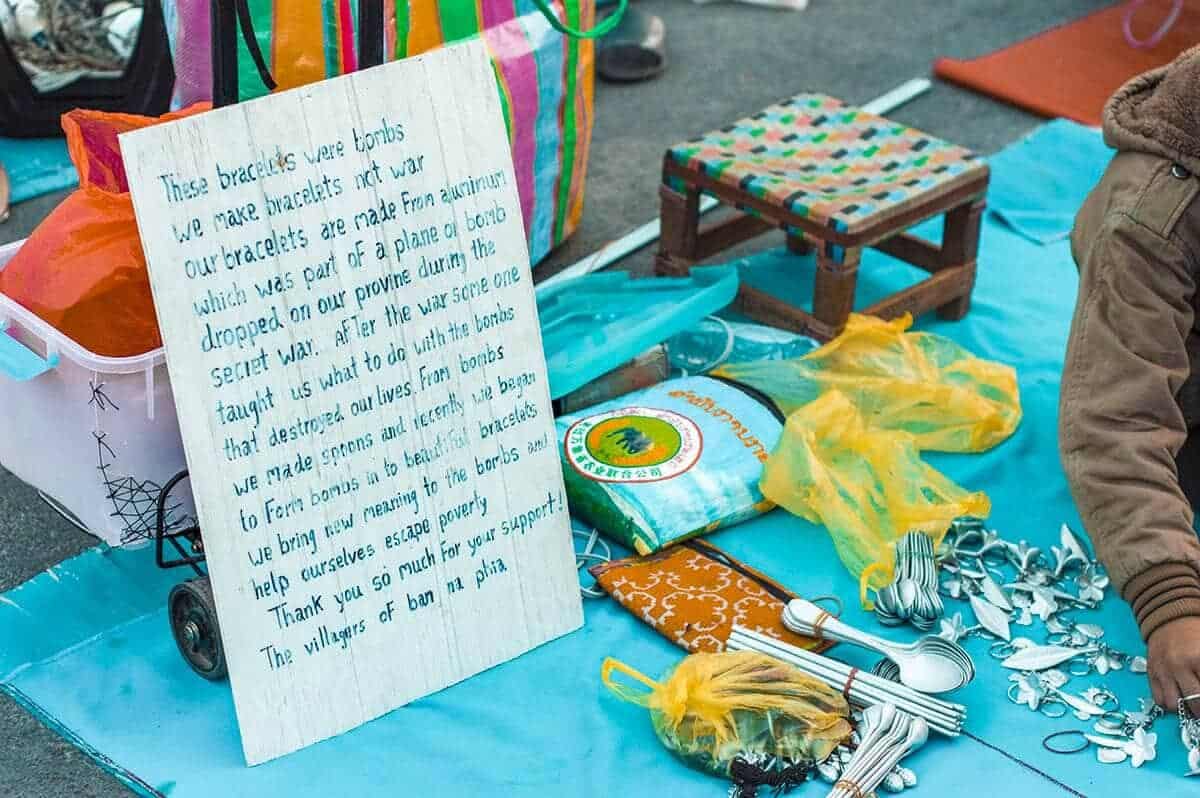 These bracelets were bombs
we make bracelets not war
our bracelets are made From aluminum
which was part of a plane or bomb
dropped on our provine during the
secret war. AFTer the war some one
taught us what to do with the bombs
that destroyed our lives. From bombs
we made spoons and recently we began
to Form bombs in to beautiful bracelets
we bring new meaning to the bombs and
help ourselves escape poverty
Thank you so much For your support!
The villagers of ban na phia